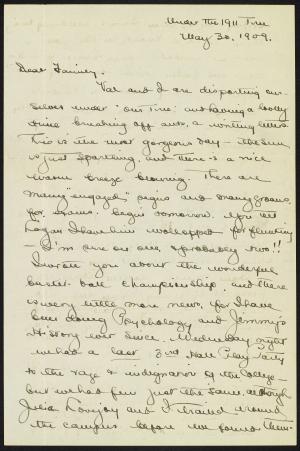 Under the 1911 Tree
May 30, 1909.
Dear Family,
Val and I are disporting our-
selves under "our tree", and having a lovely
time breaking off ants, & writing letters.
This is the most gorgeous day – the sun
is just sparkling, and there is a nice
warm breeze blowing. There are
many "engaged" signs and many groans,
for exams. begin tomorrow. You tell
Logan I have him walloped for flunking
– I'm sure on one, & probably two!!
I wrote you about the wonderful
basket ball championship, and there
is very little more news, for I have
been doing Psychology and Jimmy's
History ever since. Wednesday night
we had a last 3rd Hall Play Party
to the rage & indignation of the College –
but we had fun just the same, although
Julia Lovejoy and I trailed around
the campus before we found them –